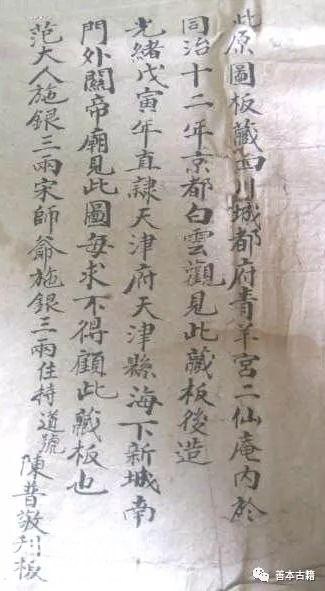 此原圖板藏四川城都府青羊宮二仙庵內於
同治十二年京都白雲觀見此藏板後造
光緒戊寅年直隸天津府天津縣海下新城南
門外關帝廟見此圖每求不得顧此藏板也
范大人施銀三兩宋師爺施銀三兩住持道號
陳普敬刋板
善本古籍